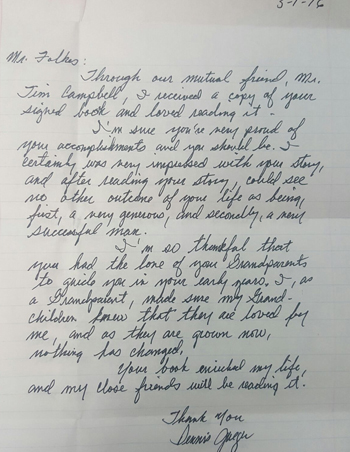 3-7-16
Mr. Folkes:
Through our mutual friend, Mr.
Tim Campbell, I received a copy of your
signed book and loved reading it.
I'm sure you're very proud of
your accomplishments and you should be. I
certainly was very impressed with your story,
and after reading your story, could see
no other outcome of your life as being,
first, a very generous, and secondly, a very
successful man.
I'm so thankful that
you had the love of your Grandparents
to guide you in your early years. I, as
a Grandparent, made sure my Grand-
children knew that they are loved by
me, and as they are grown now,
nothing has changed.
Your book enriched my life,
and my close friends will be reading it.
Thank You
Dennis